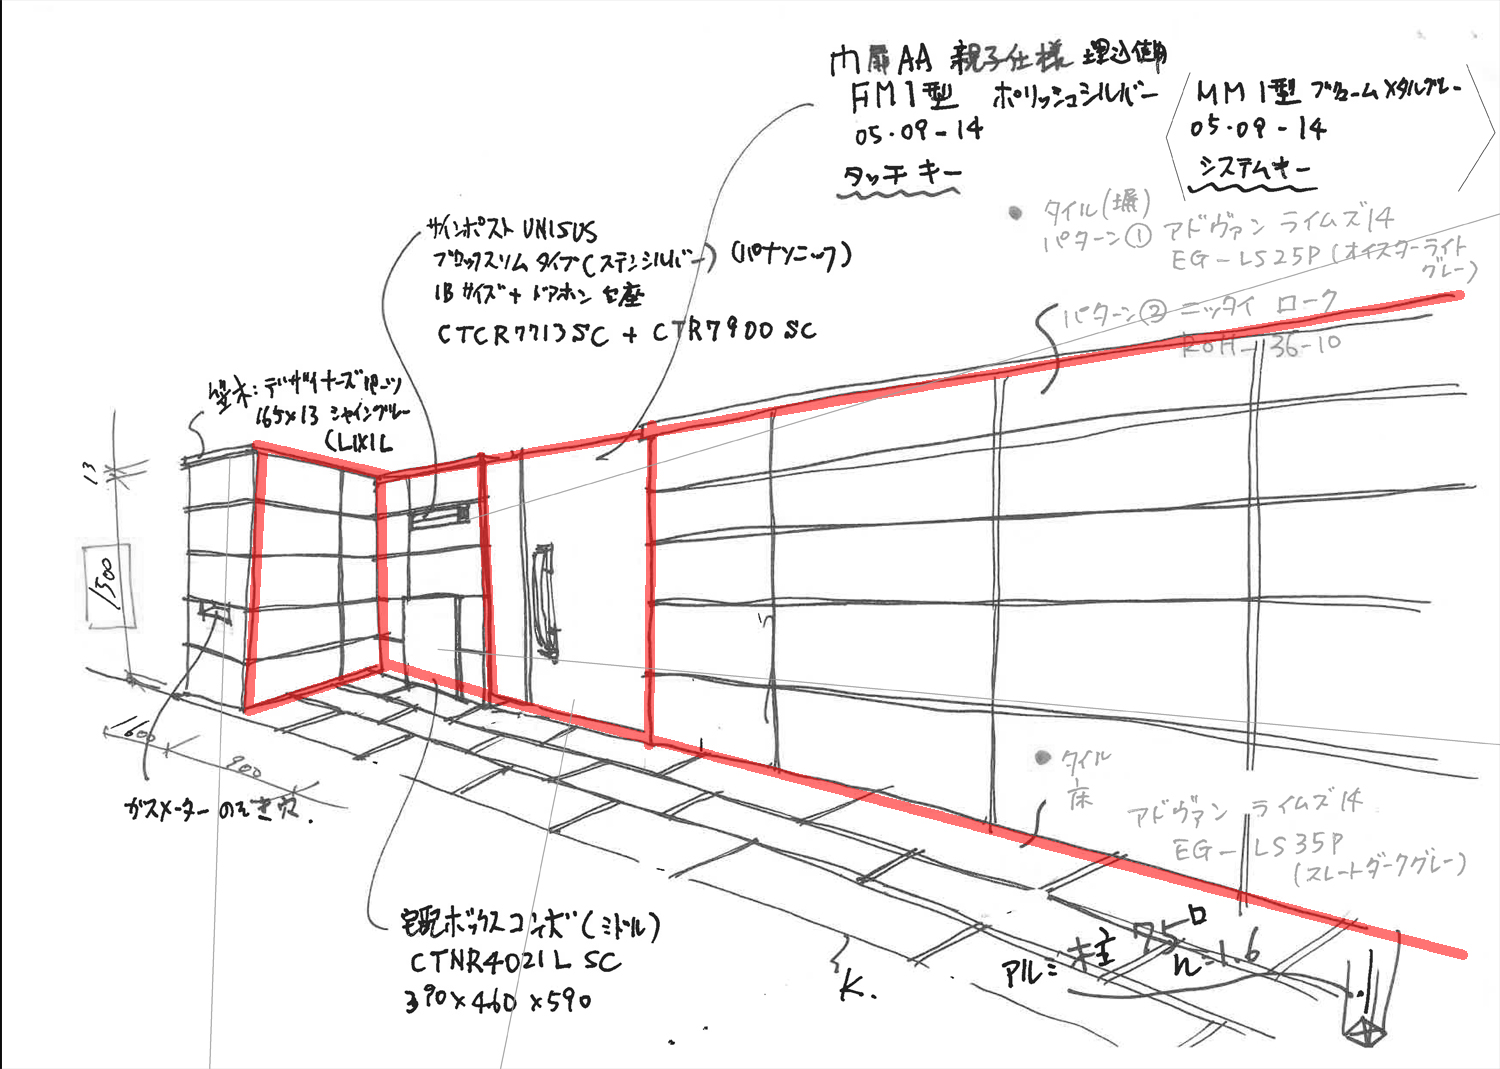 門扉AA 親子仕様 埋込使用
FM1型 ポリッシュシルバー
05・09-14
タッチキー
MM1型 プロームメタルグレー
05・09-14
システムキー
サインポスト UNISUS
ブロックスリムタイプ(ステンシルバー) (パナソニック)
1Bサイズ+ドアホン台座
CTCR7713SC + CTR7900SC
タイル(塀)
パターン① アドヴァン ライムズ14
EG-LS25P (オイスターライト
グレー)
パターン② ニッタイ ローク
ROH-36-10
笠木:デザイナーズパーツ
165×13 シャイングレー
(LIXIL
13
1500
1600
900
ガスメーターのぞき穴.
タイル
床
アドヴァン ライムズ14
EG-LS35P
(スレートダークグレー)
宅配ボックスコンボ(ミドル)
CTNR4021L SC
390×460×590
K.
アルミ柱 75□
h=1.6